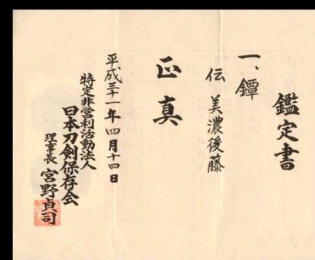 鑑定書
一、鐔
伝 美濃後藤
正真
平成三十一年四月十四日
特定非営利活動法人
日本刀剣保存会
理事長 宮野貞司